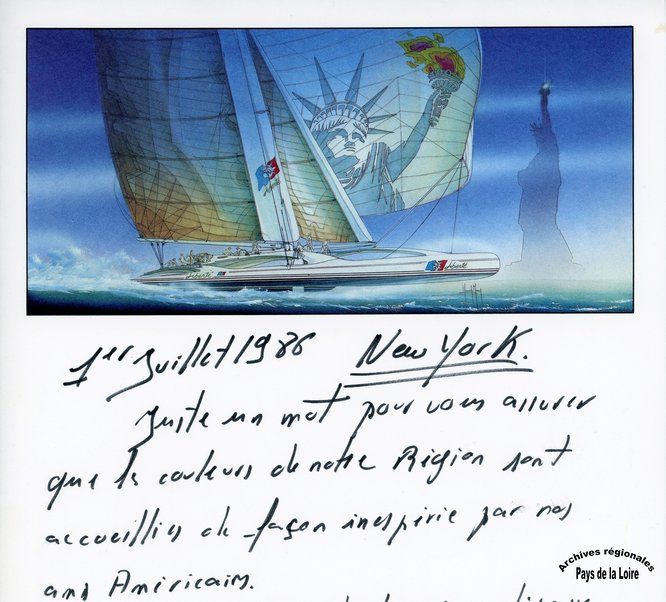 Liberté
Liberté
1er Juillet 1986 New York.
Juste un mot pour vous assurer
que les couleurs de notre Région sont
accueillies de façon inespérée par nos
amis Américains.
Archives régionales
Pays de la Loire